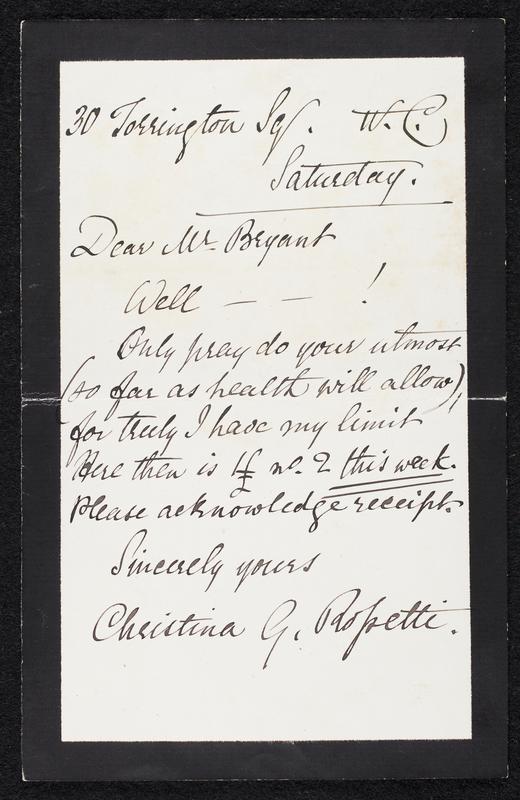 30 Torrington Sq. W.C.
Saturday.
Dear Mr. Bryant
Well — — !
Only pray do your utmost
(so far as health will allow),
for truly I have my limit
Here then is 1£ no. 2 this week.
Please acknowledge receipt.
Sincerely yours
Christina G. Rossetti.